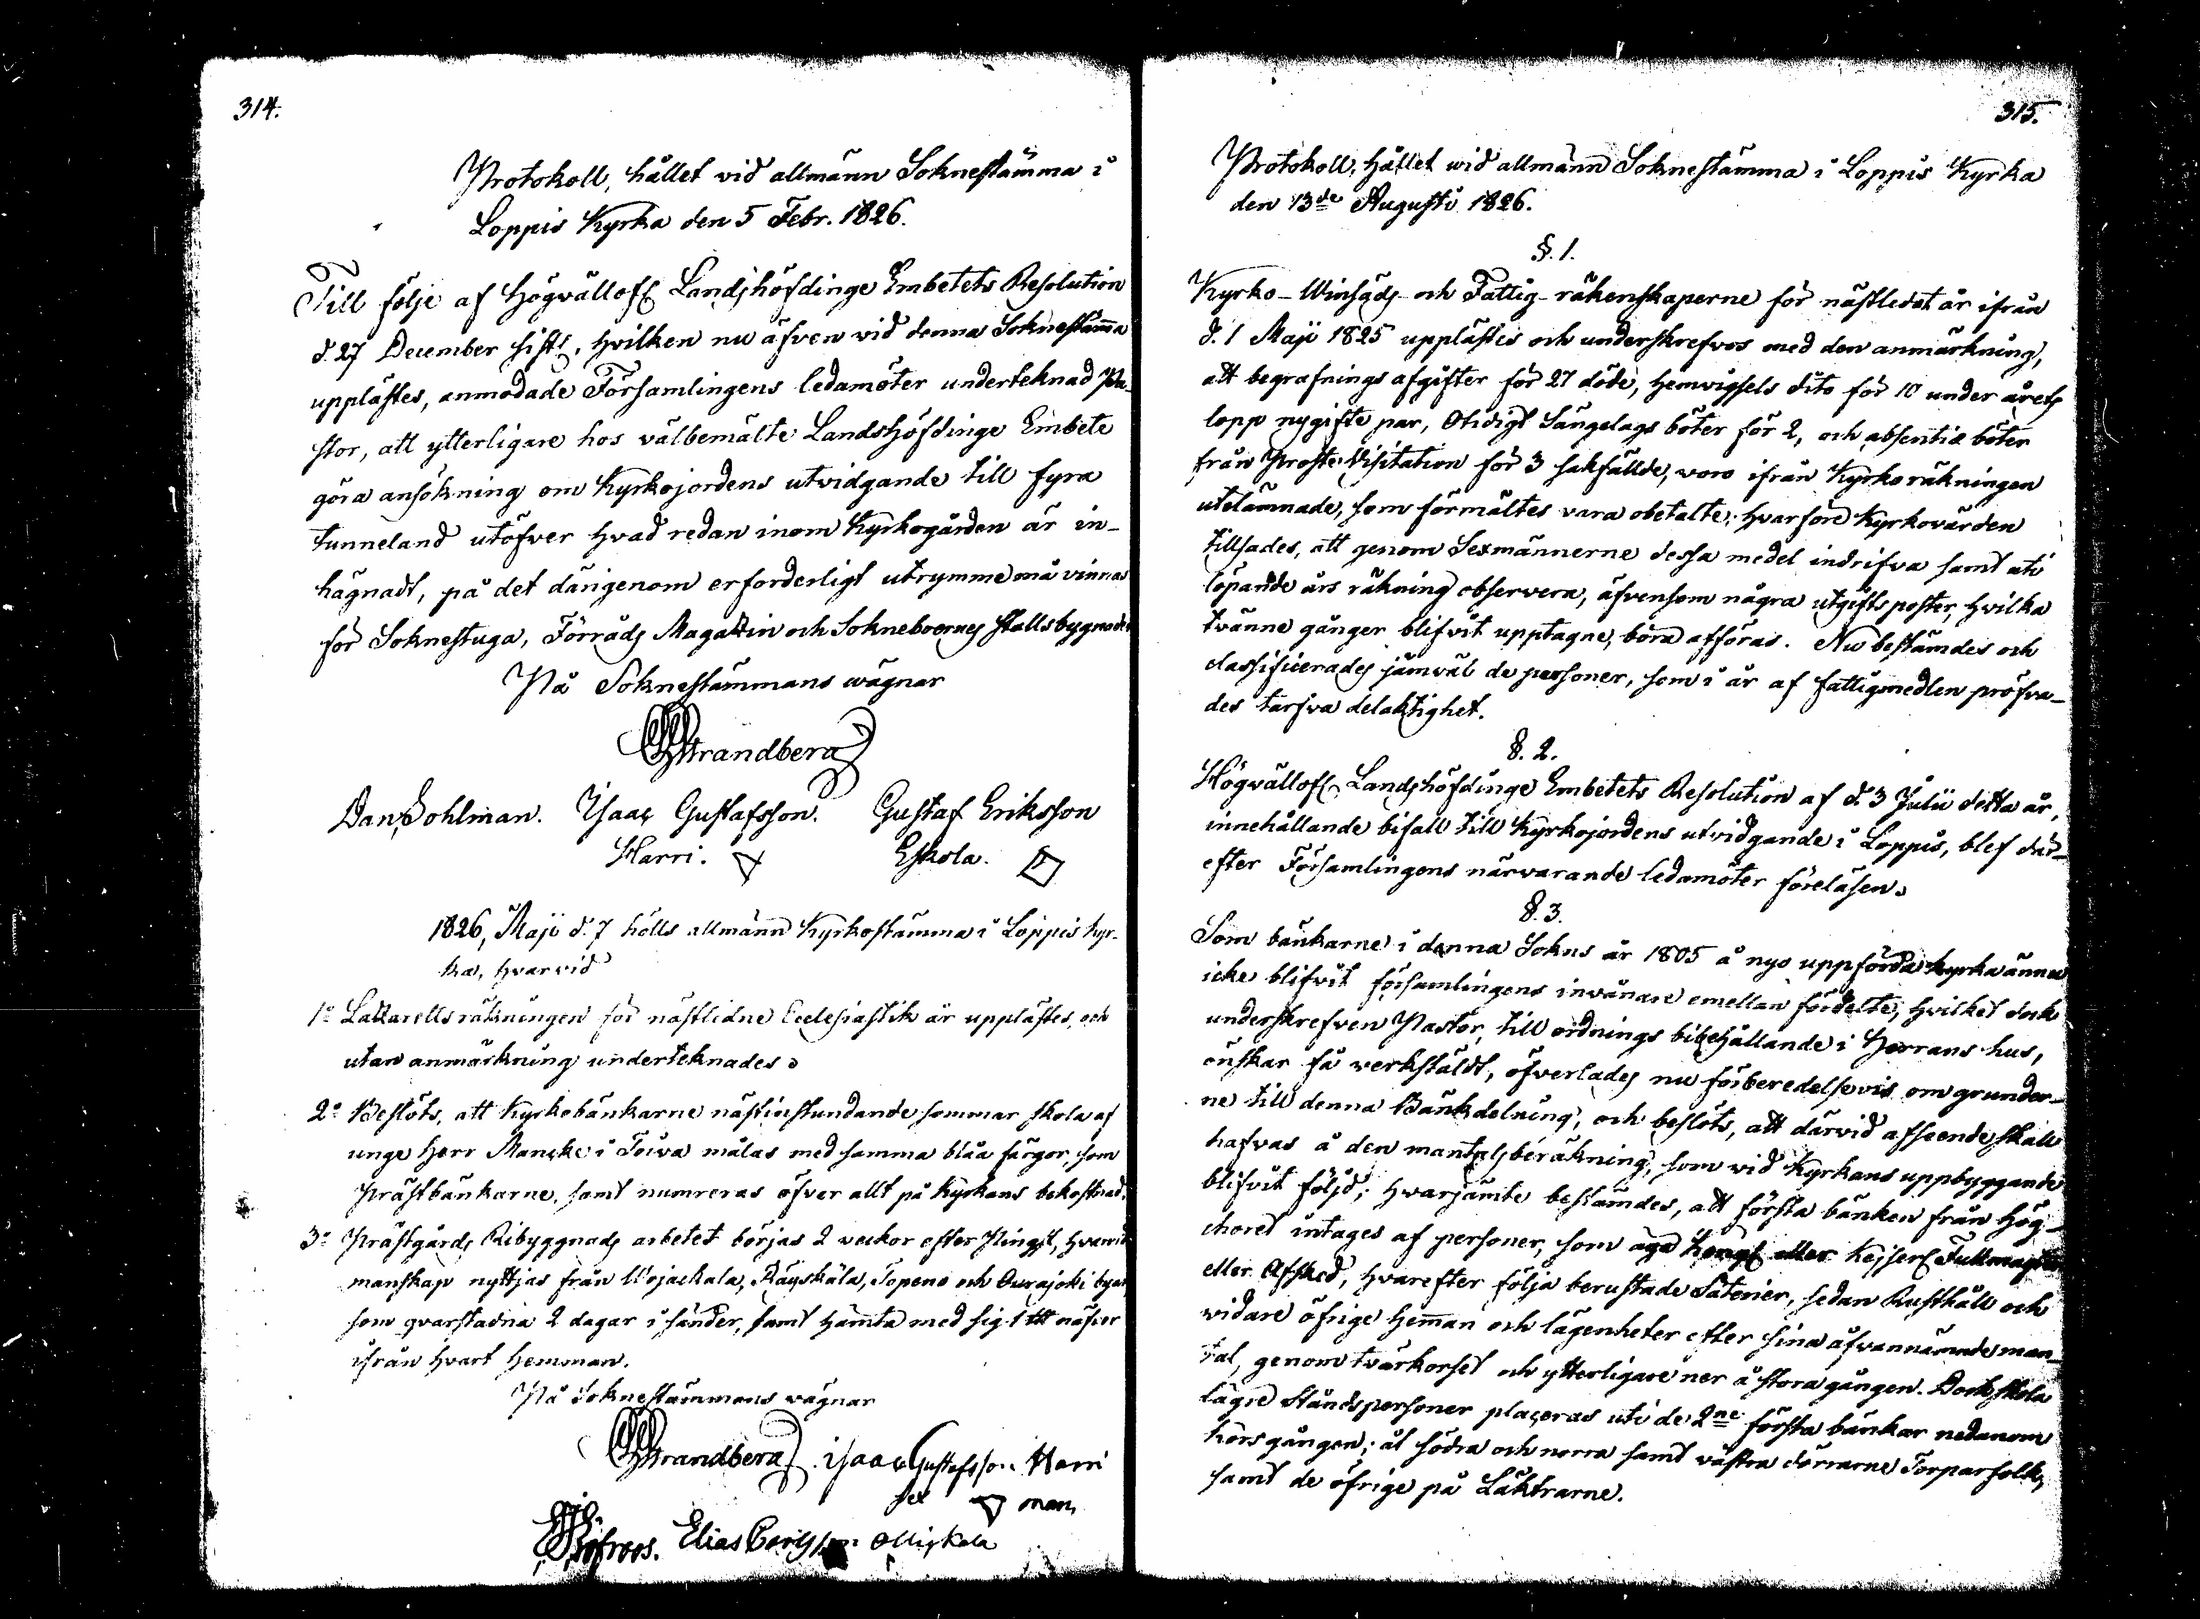 314.
Protokoll, hållet vid allmänn Soknestämma i
Loppis Kyrka den 5 Febr. 1826.
Till följe af Högvällofl. Landshöfdinge Embetets Resolution
d. 27 December sistl., hvilken nu äfven vid denna Soknestämma
upplästes, anmodade Församlingens ledamöter underteknad Pa-
stor, att ytterligare hos välbemälte Landshöfdinge Embete
göra ansökning om Kyrkojordens utvidgande till fyra
tunneland utöfver hvad redan inom Kyrkogården är in-
hägnadt, på det därigenom erforderligt utrymme må vinnas
för Soknestuga, Förråds Magazin och Sokneboernes stallsbygnader
På Soknestämmans wägnar
Strandberg
Dan Bohlman. Isaac Gustafsson. Gustaf Eriksson
Harri. Eskola.
1826, Maji d. 7 hölls allmänn Kyrkostämma i Loppis kyr-
ka, hvarvid
1o Lazarettsräkningen för nästlidne Ecclesiastik år upplästes, och
utan anmärkning underteknades.
2o Beslöts, att Kyrkobänkarne nästinstundande sommar skola af
unge Herr Mancke i Toiva målas med samma blåa färgor, som
Prästbänkarne, samt numreras öfver allt på Kyrkans bekostnad.
3o Prästgårds Ribyggnads arbetet börjas 2 veckor efter Pingst, hvarvid
manskap nyttjas från Wojackala, Räyskälä, Topeno och Ourajoki byar
som qvarstadna 2 dagar i sänder, samt hämta med sig 1 lb näfver
ifrån hvart Hemman.
På Soknestämmans wägnar
Strandberg. isaac Gustafsson Harri
sex man,
Elias Carlsson Ollickala
315.
Protokoll, hållet wid allmänn Soknestämma i Loppis Kyrka
den 13de Augusti 1826.
§. 1.
Kyrko- Winsäds- och Fattig-räkenskaperne för nästledet år ifrån
d. 1 Maji 1825 upplästes och underskrefvos med den anmärkning,
att begrafnings afgifter för 27 döde, hemvigsels dito för 10 under årets
lopp nygifte par, Otidigt Sängelags böter för 2, och absentiæ böter
från Proste Visitation för 3 sakfällde, woro ifrån Kyrkoräkningen
utelämnade, som förmältes vara obetalte; hvarföre Kyrkovärden
tillsades, att genom Sexmännerne dessa medel indrifva samt uti
löpande års räkning observera, äfvensom några utgiftsposter, hvilka
tvänne gånger blifvit upptagne, böra afföras. Nu bestämdes och
classificerades jämväl de personer, som i år af fattigmedlen pröfva-
des tarfva delaktighet.
§. 2.
Högvällofl. Landshöfdinge Embetets Resolution af d. 3 Julii detta år,
innehållande bifall till Kyrkojordens utvidgande i Loppis, blef där-
efter Församlingens närvarande ledamöter föreläsen.
§. 3.
Som bänkarne i denna Sokns år 1805 å nyo uppförda kyrka ännu
icke blifvit församlingens invånare emellan fördelte, hvilket dock
underskrefven Pastor, till ordnings bibehållande i Herrans hus,
önskar få verkstäldt, öfverlades nu förberedelsevis om grunder-
ne till denna Bänkdelning, och beslöts, att därvid afseende skall
hafvas å den mantalsberäkning, som wid Kyrkans uppbyggande
blifvit följd; hvarjämte bestämdes, att första bänken från Hög-
choret intages af personer, som äga Kongl. eller Kejserl. Fullmagter
eller Afsked, hvarefter följa berustade Säterier, sedan Rusthåll och
widare öfrige Hemman och lägenheter efter sina åfvannämnde man-
tal, genom tvärkorset och ytterligare ner å stora gången. Dock skola
lägre ståndspersoner placeras uti de 2ne första bänkar nedanom
korsgången; åt södra och norra samt västra dörrarne Torparfolk,
samt de öfrige på Läktrarne.